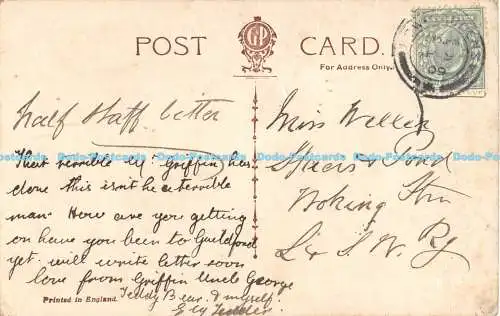 POST CARD.
For Address Only.
half staff letter
That terrible Mr Griffin has
done this isn't he a terrible
man. How are you getting
on have you been to Guildford
yet. will write letter soon
love from Griffin Uncle George
Teddy Bear & myself.
Miss Weller
Spiers & Pond
Woking Stn
L & S. W. Ry
Printed in England.
Dodo-Postcards Dodo-Postcards Dodo-Postcards Dodo-Postcards